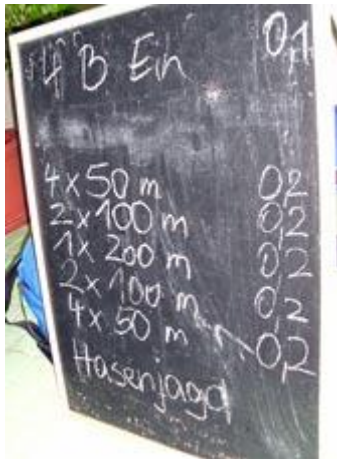 4 B Ein 0,1
4 x 50 m 0,2
2 x 100 m 0,2
1 x 200 m 0,2
2 x 100 m 0,2
4 x 50 m 0,2
Hasenjagd